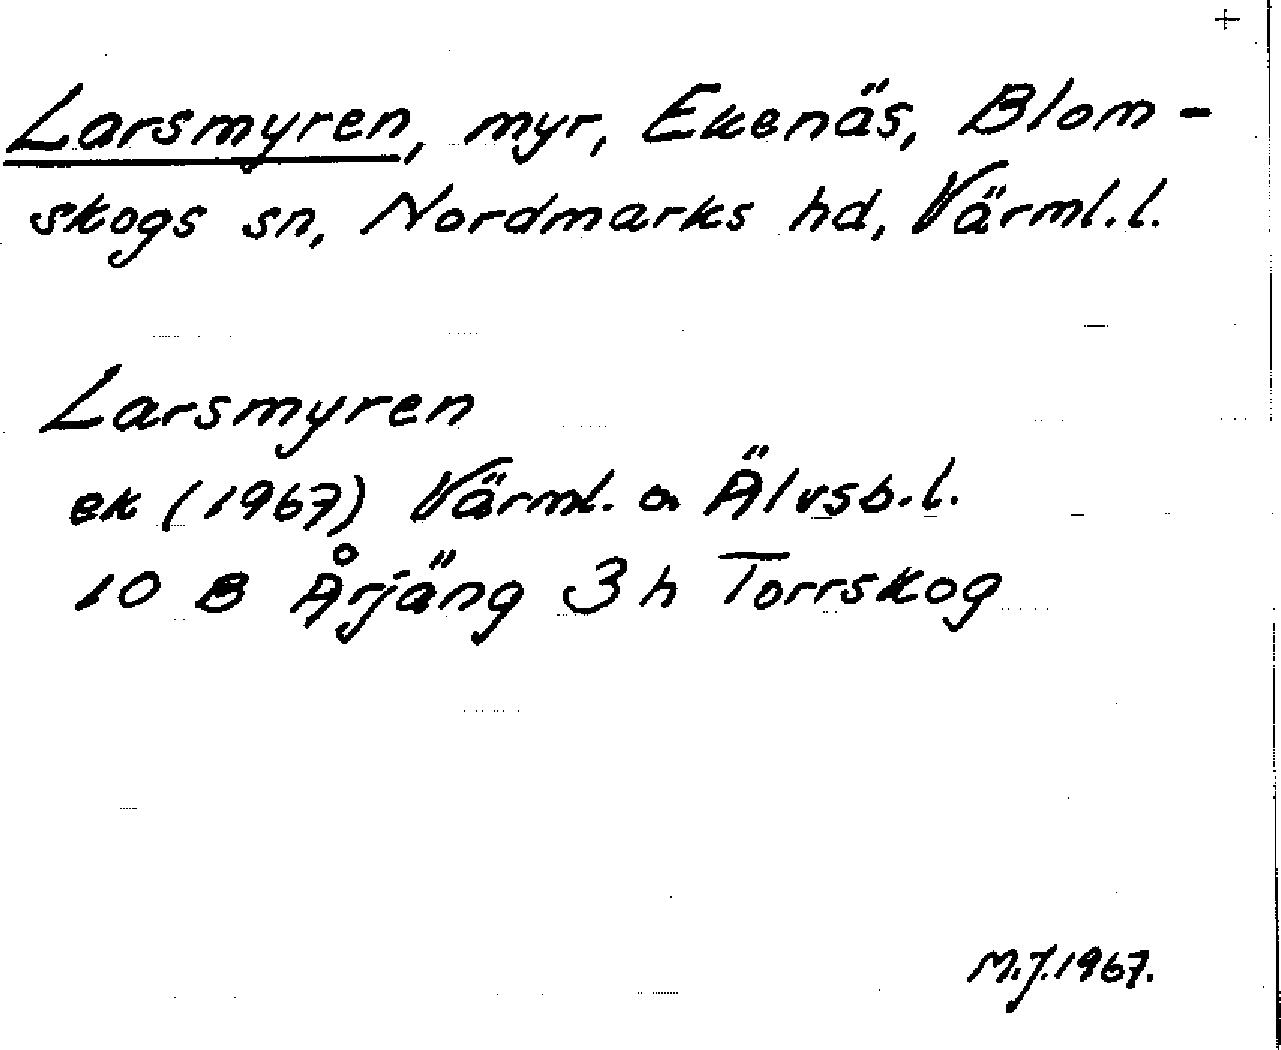 +
Larsmyren, myr, Ekenäs, Blom-
skogs sn, Nordmarks hd, Värml.l.
Larsmyren
ek (1967) Värml. o Älvsb.l.
10 B Årjäng 3 h Torrskog
M.J.1967.